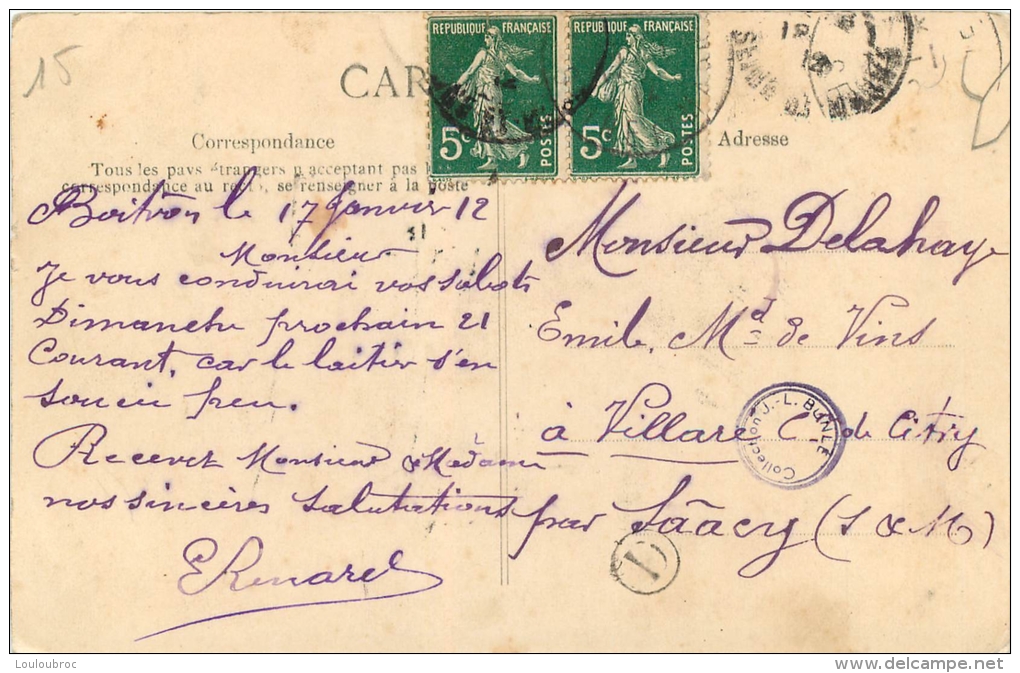 15
CAR
RÉPUBLIQUE FRANÇAISE
5c
POSTES
RÉPUBLIQUE FRANÇAISE
5c
POSTES
Correspondance
Tous les pays étrangers n'acceptant pas
correspondance au se renseigner à la Poste
Boitron le 17 Janvier 12
Monsieur
Je vous conduirai vos sabots
Dimanche prochain 21
Courant, car le laitier s'en
soucie peu.
Recevez Monsieur & Madame
nos sincères salutations
E Renard
Adresse
Monsieur Delahaye
Emile, Md de Vins
à Villaré Cne de Citry
par Saâcy (S & M)
Collection J.-L. BUNLE
L
Louloubroc
delcampe.net